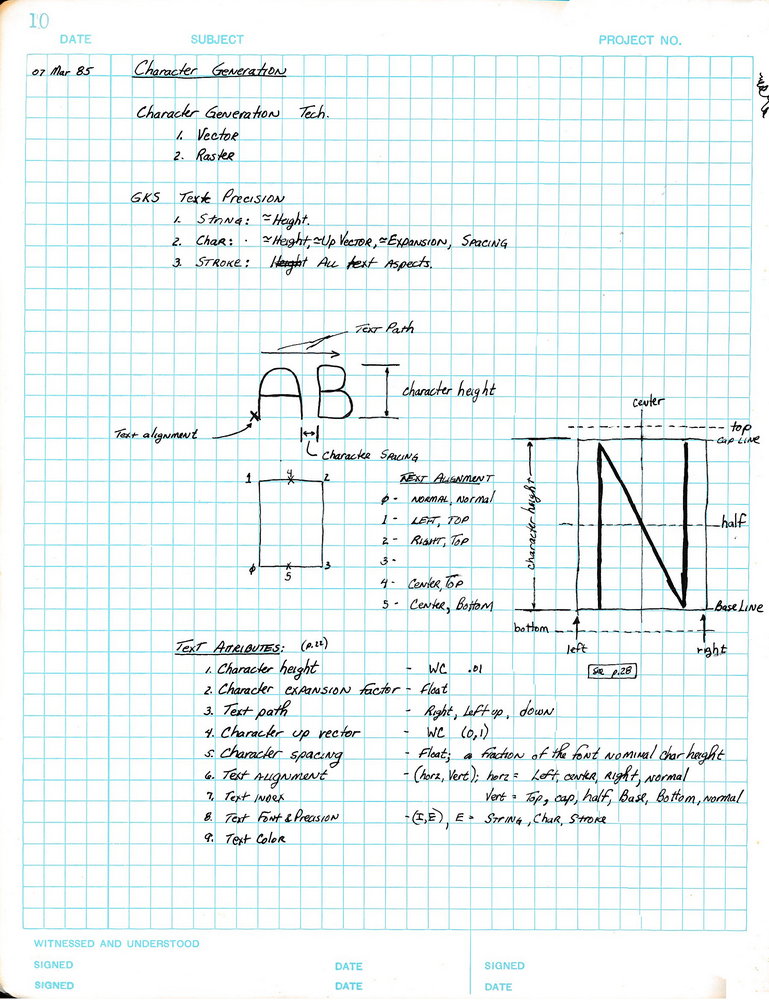 10
DATE SUBJECT PROJECT NO.
07 Mar 85 Character Generation
Character Generation Tech.
1. Vector
2. Raster
GKS Text Precision
1. String: ≃Height.
2. Char: ≃Height, ≃Up Vector, ≃Expansion, Spacing
3. STROKE: Height All text Aspects.
Text Path
AB
character height
Text alignment
Character Spacing
center
top
Cap Line
character height
half
Base Line
bottom
left
right
see p.28
1 4 2
φ 5 3
TEXT ALIGNMENT
φ - NORMAL, Normal
1 - LEFT, TOP
2 - Right, Top
3 -
4 - Center, Top
5 - Center, Bottom
N
Text Attributes: (p.22)
1. Character height - WC .01
2. Character expansion factor - Float
3. Text path - Right, Left up, down
4. Character up vector - WC (0,1)
5. Character spacing - Float; a fraction of the font nominal char height
6. Text Alignment - (horz, Vert); horz = Left, center, Right, normal
7. Text index Vert = Top, cap, half, Base, Bottom, normal
8. Text Font & Precision - (I,E), E = String, Char, Stroke
9. Text Color
WITNESSED AND UNDERSTOOD
SIGNED DATE SIGNED
SIGNED DATE DATE